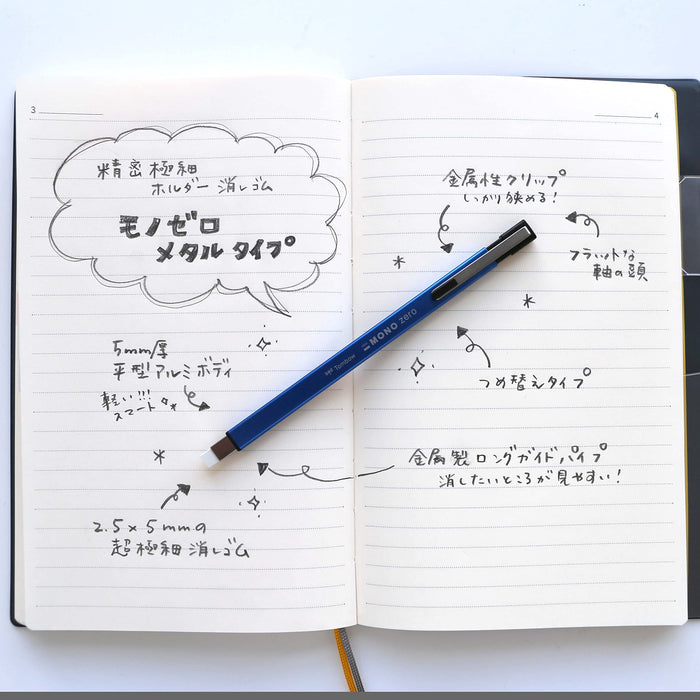 3
精密極細
ホルダー消しゴム
モノゼロ
メタルタイプ
5mm厚
平型アルミボディ
軽い!!!
スマート
2.5×5mmの
超極細消しゴム
Tombow MONO zero
4
金属性クリップ
しっかり挟める!
フラットな
軸の頭
つめ替えタイプ
金属製ロングガイドパイプ
消したいところが見やすい!